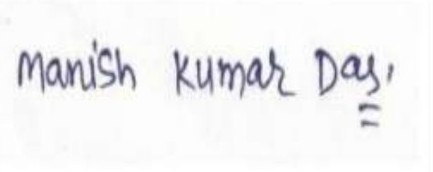 Manish Kumar Das,